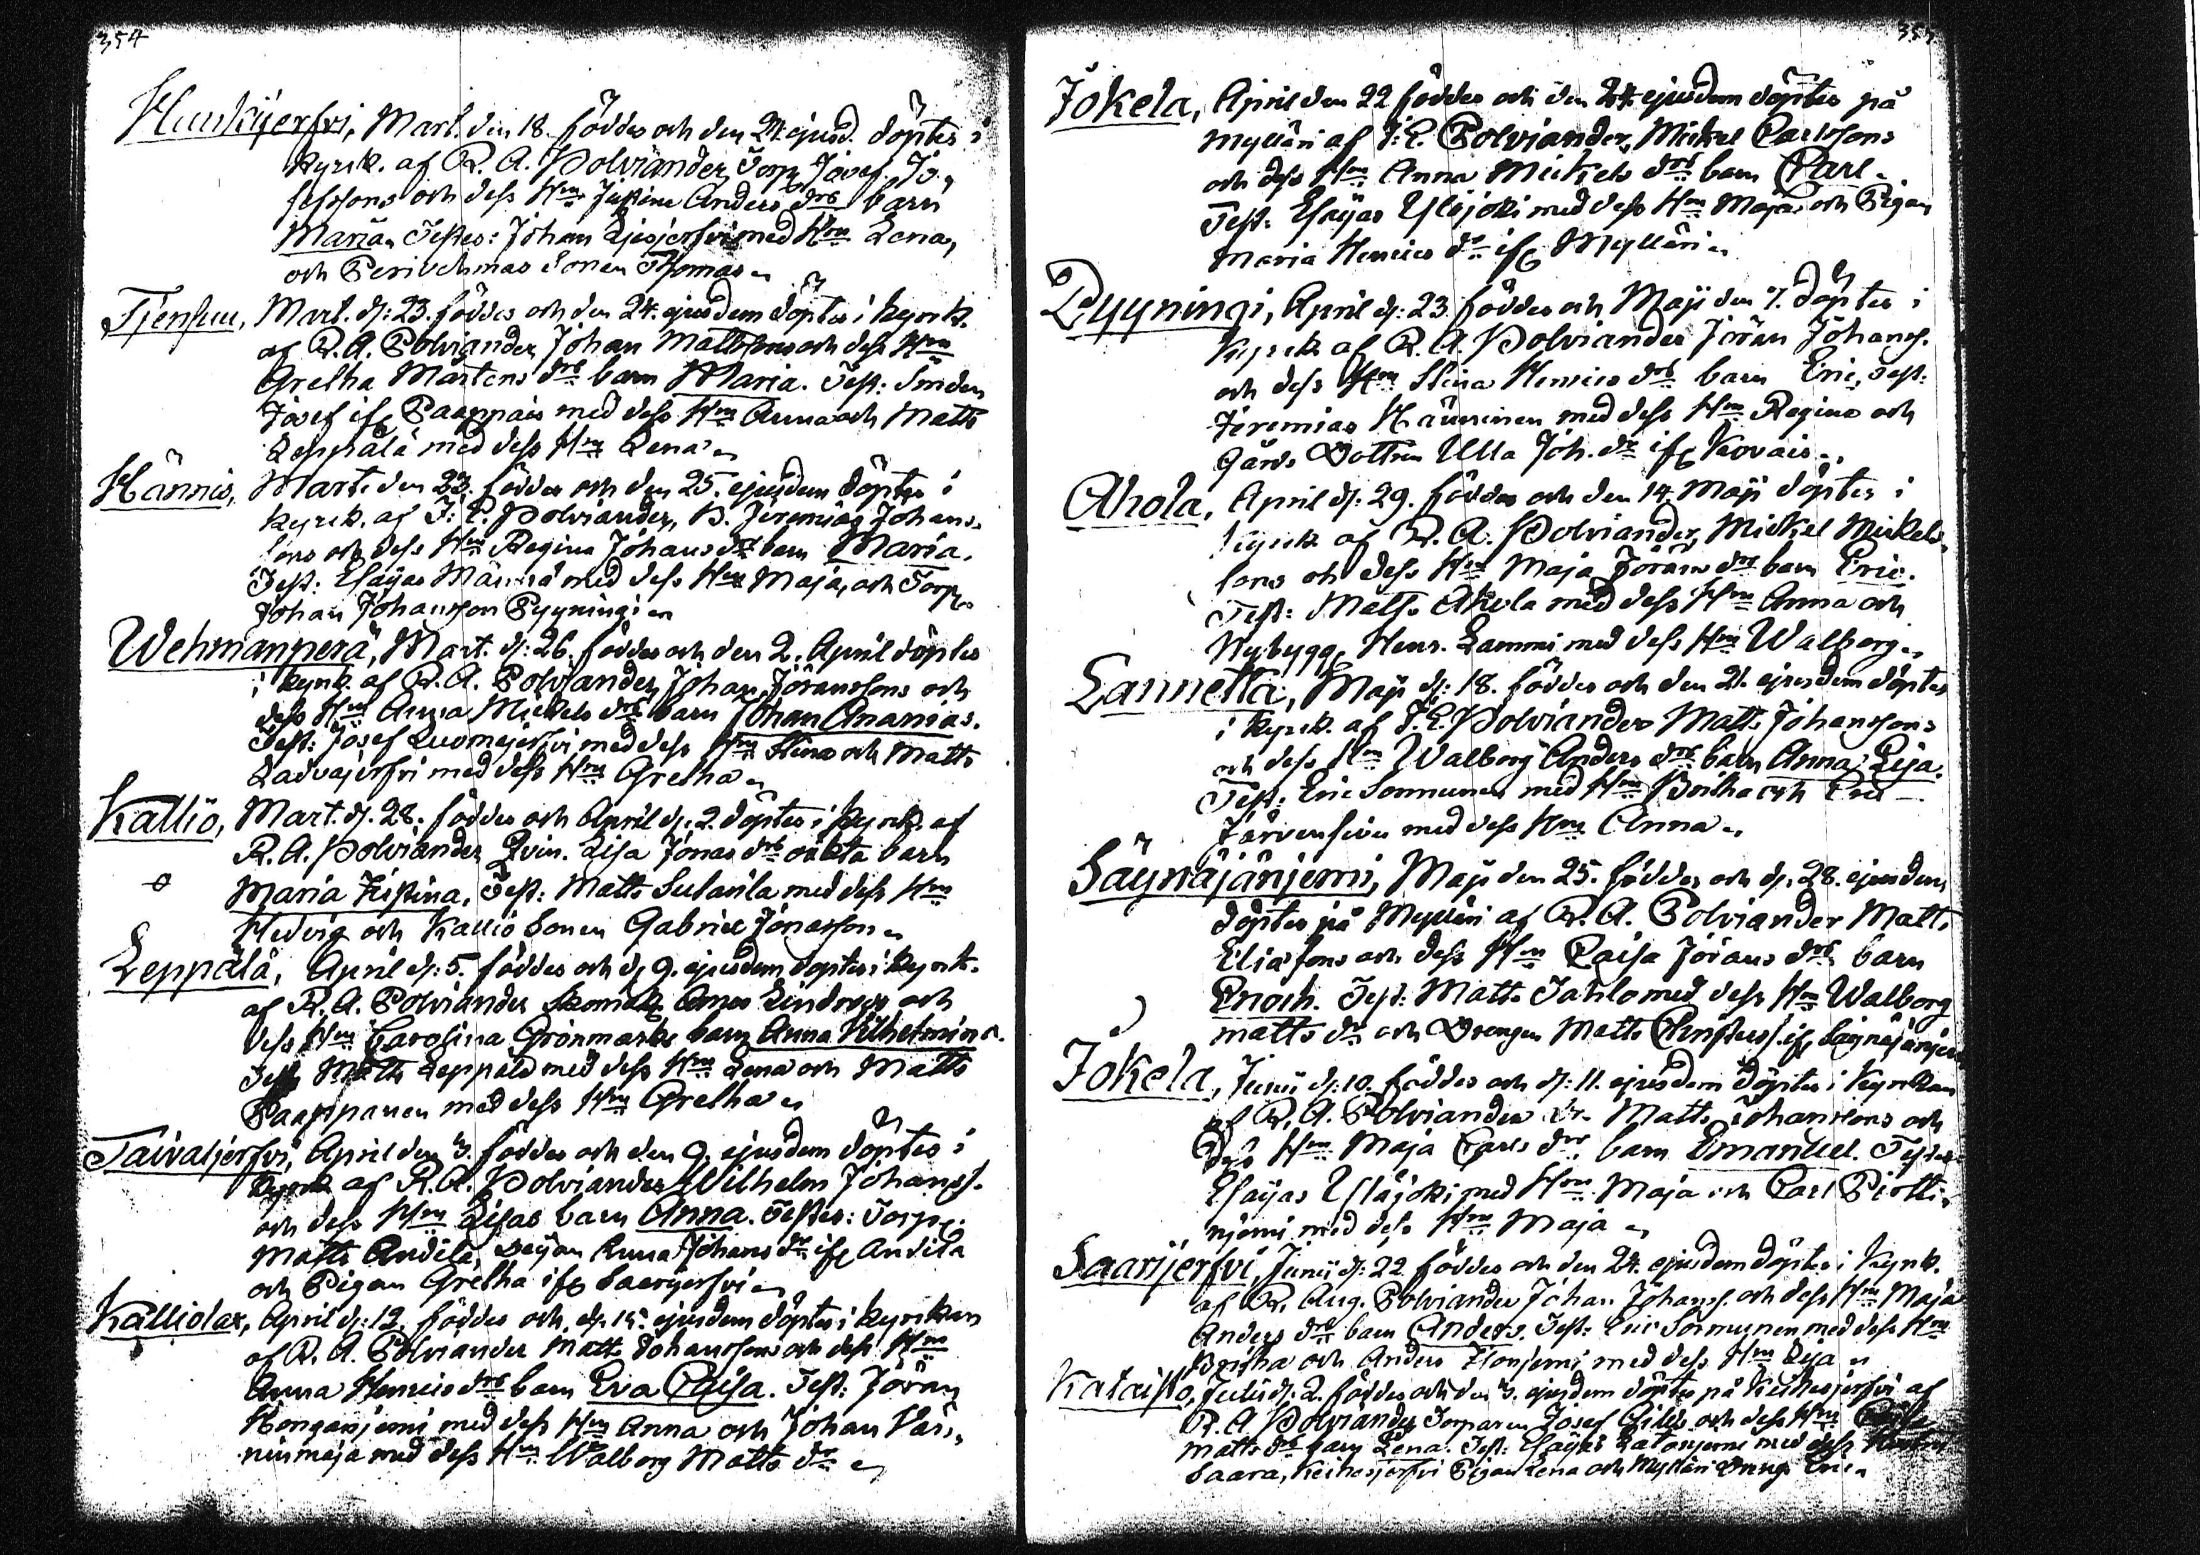 354
Hunkijerfvi, Mart. den 18. föddes och den 24. ejusd. döptes i
kyrck. af R. A. Polviander, Torp. Josef Jo-
sefssons och dess Hru Justina Anders drs barn
Maria. Testes: Johan med Hru Lena,
och sonen Thomas.
Tjensuu, Mart. d: 23. föddes och den 24. ejusdem döptes i kyrck.
af R. A. Polviander, Johan Mattssons och dess Hru
Gretha Mårtens drs barn Maria. Test: Smeden
Josef if. Paappais med dess Hru Anna och Matts
Leppälä med dess Hru Lena.
Hännis, Mart. den 23. föddes och den 25. ejusdem döptes i
kyrck. af J: E: Polviander, B. Jeremias Johans-
sons och dess Hru Regina Johans drs barn Maria.
Test: Esaijas Männä med dess Hru Maja, och Torp.
Johan Johansson Pyyningi.
Wehmanperä, Mart. d: 26. föddes och den 2. April döptes
i kyrck. af R. A. Polviander, Johan Jöranssons och
dess Hru Anna Mickels drs barn Johan Ananias.
Test: Josef Luomajerfvi med dess Hru Stina och Matts
Ladvajerfvi med dess Hru Gretha.
Kallio, Mart. d: 28. föddes och April d: 2. döptes i kyrck. af
R. A. Polviander, Qvin. Lisa Jonas drs oäkta barn
Maria Kistina, Test: Matts Sulasila med dess Hru
Hedvig och Kallio Sonen Gabriel Jonasson.
Leppälä, April d: 5. föddes och d. 9. ejusdem döptes i kyrck.
af R. A. Polviander Skomak. och
dess Hru Carolina Grönmarks barn Anna Vilhelmina.
Test: Matts Leppälä med dess Hru Lena och Matts
Paappanen med dess Hru Gretha.
Taivaljerfvi, April den 3. föddes och den 9. ejusdem döptes i
kyrck. af R. A. Polviander, Wilhelm Johanss.
och dess Hru Lisas barn Anna. Testes: Torp.
Matts Andila, Pejan Anna Johans dr if. Andila
och Pigan Gretha if. Saarijerfvi.
Kalliolax, April d: 12. föddes och d. 15. ejusdem döptes i kyrckan
af R. A. Polviander Matts Johanssons och dess Hru
Anna Henrics drs barn Eva Caisa. Test: Jöran
Honganjemi med dess Hru Anna och Johan Vän-
ninmäja med dess Hru Walborg Matts dr.
355
Jokela, April den 22 föddes och den 24. ejusdem döptes på
Mylläri af J: E. Polviander, Mickel Carlssons
och dess Hru Anna Mickels drs barn Carl.
Test: Esaijas Ylisjoki med dess Hru Maja och Pigan
Maria Henrics dr if. Mylläri.
Pyyningi, April d: 23. föddes och Maji den 7. döptes i
kyrck. af R. A. Polviander Jöran Johanss.
och dess Hru Stina Henrics drs barn Eric, Test:
Jeremias Hänninen med dess Hru Regina och
Gårds Dottren Ulla Joh. dr if. Kovais.
Ahola, April d: 29. föddes och den 14. Maji döptes i
kyrck. af R. A. Polviander, Mickel Mickels-
sons och dess Hru Maja Jörans drs barn Eric.
Test: Matts Ahola med dess Hru Anna och
Nybygg. Henr. Lammi med dess Hru Walborg.
Lannetta, Maji d: 18. föddes och den 21. ejusdem döptes
i kyrck. af J. E. Polviander Matts Johanssons
och dess Hru Walborg Anders drs barn Anna Lisa.
Test: Eric Sormunen med Hru Britha och Eric
Järvensivu med dess Hru Anna.
Säynäjänjemi, Maji den 25. föddes och d. 28. ejusdem
döptes på Mylläri af R. A. Polviander Matts
Eliassons och dess Hru Caisa Jörans drs barn
Enoch. Test: Matts Jahlo med dess Hru Walborg
Matts dr och Drengen Matts Christerss. if. Säynäjänjemi
Jokela, Junii d: 10. föddes och d: 11. ejusdem döptes i kyrckan
af R. A. Polviander Matts Johanssons och
dess Hru Maja Carls drs barn Emanuel. Testes
Esaijas Ylläjoki med Hru Maja och Carl Piötti-
njemi med dess Hru Maja.
Saarijerfvi, Junii d: 22. föddes och den 24. ejusdem döptes i kyrck.
af R. Aug. Polviander Johan Johanss. och dess Hru Maja
Anders drs barn Anders. Test: Eric Sormunen med dess Hru
Britha och Anders Honjemi med dess Hru Lisa.
Kataisto, Julii d: 2. föddes och den 3. ejusdem döptes på Keihesjerfvi af
R. A. Polviander Torparen Josef och dess Hru
Matts drs barn Lena. Test: Esaijas med dess Hustru
Saara, Keihesjerfvi Pigan Lena och Mylläri Dreng. Eric.